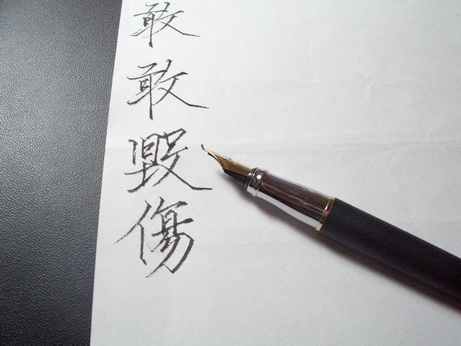 敢
敢
毀
傷